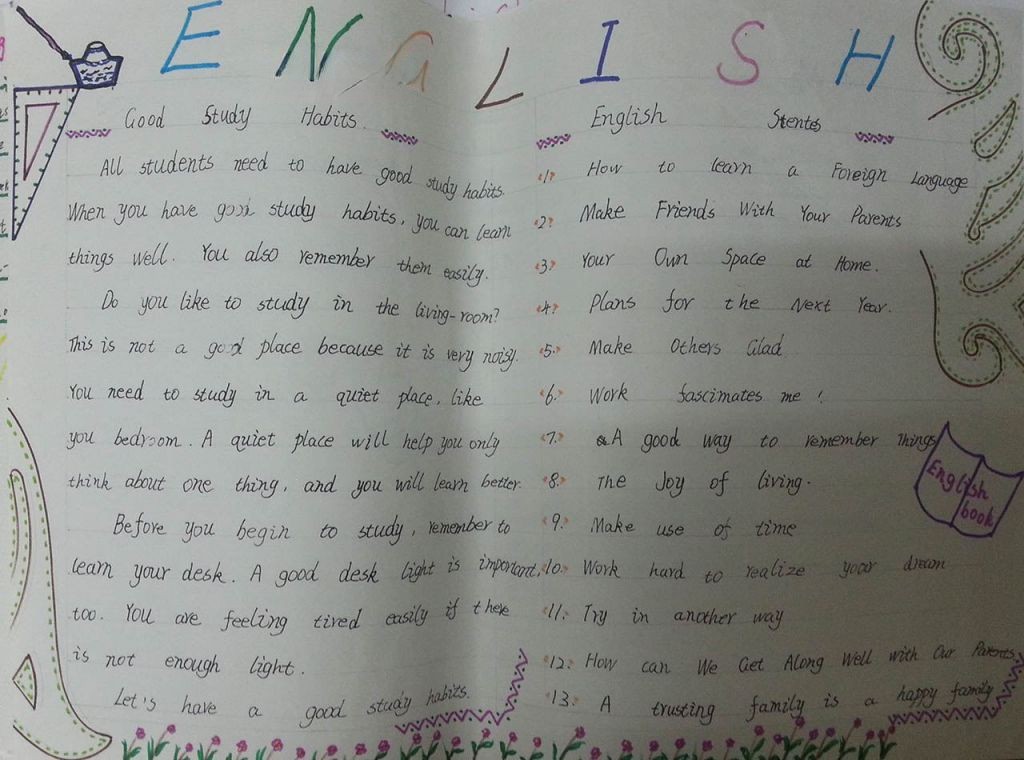 ENGLISH
Good Study Habits.
All students need to have good study habits.
When you have good study habits, you can learn
things well. You also remember them easily.
Do you like to study in the living-room?
This is not a good place because it is very noisy.
You need to study in a quiet place, like
you bedroom. A quiet place will help you only
think about one thing, and you will learn better.
Before you begin to study, remember to
learn your desk. A good desk light is important,
too. You are feeling tired easily if there
is not enough light.
Let's have a good study habits.
English Stentes
1. How to learn a Foreign Language
2. Make Friends With Your Parents
3. Your Own Space at Home.
4. Plans for the Next Year.
5. Make Others Glad
6. Work fascimates me!
7. A good way to remember Things
8. The Joy of living.
9. Make use of time
10. Work hard to realize your dream
11. Try in another way
12. How can We Get Along Well with Our Parents
13. A trusting family is a happy family
English
book